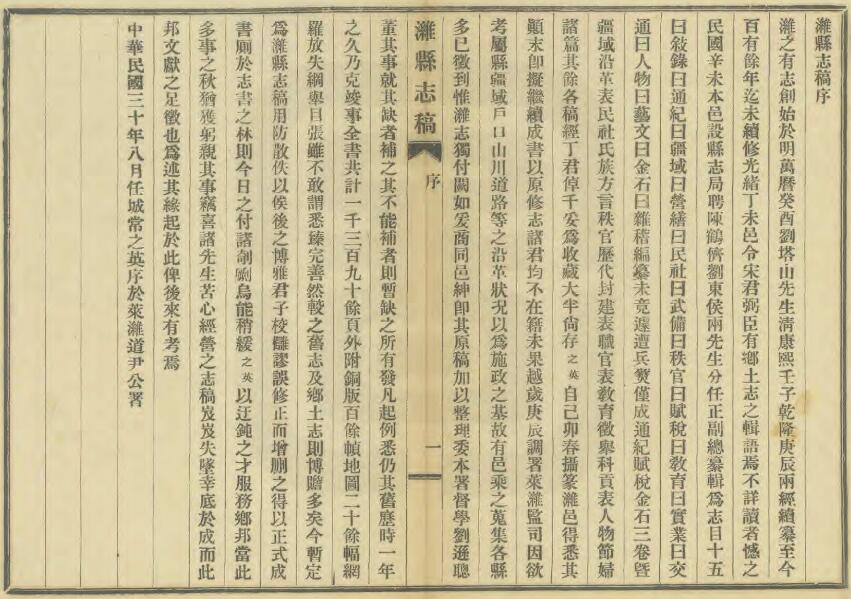 濰縣志稿序
濰之有志創始於明萬曆癸酉劉塔山先生淸康熙壬子乾隆庚辰兩經續纂至今
百有餘年迄未續修光緒丁未邑令宋君弼臣有鄉土志之輯語焉不詳讀者憾之
民國辛未本邑設縣志局聘陳鶴儕劉東侯兩先生分任正副總纂輯爲志目十五
曰敘錄曰通紀曰疆域曰營繕曰民社曰武備曰秩官曰賦稅曰敎育曰實業曰交
通曰人物曰藝文曰金石曰雜稽編纂未竟遽遭兵燹僅成通紀賦稅金石三卷曁
疆域沿革表民社氏族方言秩官歷代封建表職官表敎育徵舉科貢表人物節婦
諸篇其餘各稿經丁君倬千妥爲收藏大半尙存之英自己卯春攝篆濰邑得悉其
顚末卽擬繼續成書以原修志諸君均不在籍未果越歲庚辰調署萊濰監司因欲
考屬縣疆域戶口山川道路等之沿革狀況以爲施政之基故有邑乘之蒐集各縣
多已徵到惟濰志獨付闕如爰商同邑紳卽其原稿加以整理委本署督學劉遜聰
濰縣志稿
序
一
董其事就其缺者補之其不能補者則暫缺之所有發凡起例悉仍其舊歷時一年
之久乃克竣事全書共計一千三百九十餘頁外附銅版百餘幀地圖二十餘幅網
羅放失綱舉目張雖不敢謂悉臻完善然較之舊志及鄉土志則博贍多矣今暫定
爲濰縣志稿用防散佚以俟後之博雅君子校讎謬誤修正而增刪之得以正式成
書厠於志書之林則今日之付諸剞劂烏能稍緩之英以迂鈍之才服務鄉邦當此
多事之秋猶獲躬親其事竊喜諸先生苦心經營之志稿岌岌失墜幸底於成而此
邦文獻之足徵也爲述其緣起於此俾後來有考焉
中華民國三十年八月任城常之英序於萊濰道尹公署